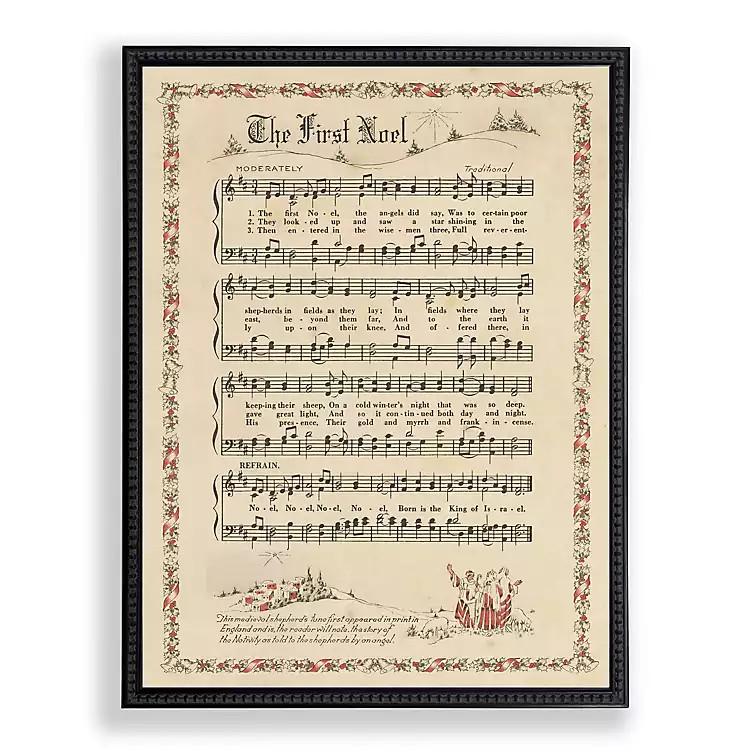 The First Noel
MODERATELY Traditional
1. The first No - el, the an-gels did say, Was to cer-tain poor
2. They look - ed up and saw a star shin-ing in the
3. Then en - tered in the wise - men three, Full rev - er - ent-
shep-herds in fields as they lay; In fields where they lay
east, be - yond them far, And to the earth it
ly up - on their knee, And of - fered there, in
keep-ing their sheep, On a cold win-ter's night that was so deep.
gave great light, And so it con-tin-ued both day and night.
His pres - ence, Their gold and myrrh and frank - in - cense.
REFRAIN.
No - el, No-el, No-el, No - el, Born is the King of Is - ra - el.
This medieval shepherd's tune first appeared in print in
England and is, the reader will note, the story of
the Nativity as told to the shepherds by an angel.